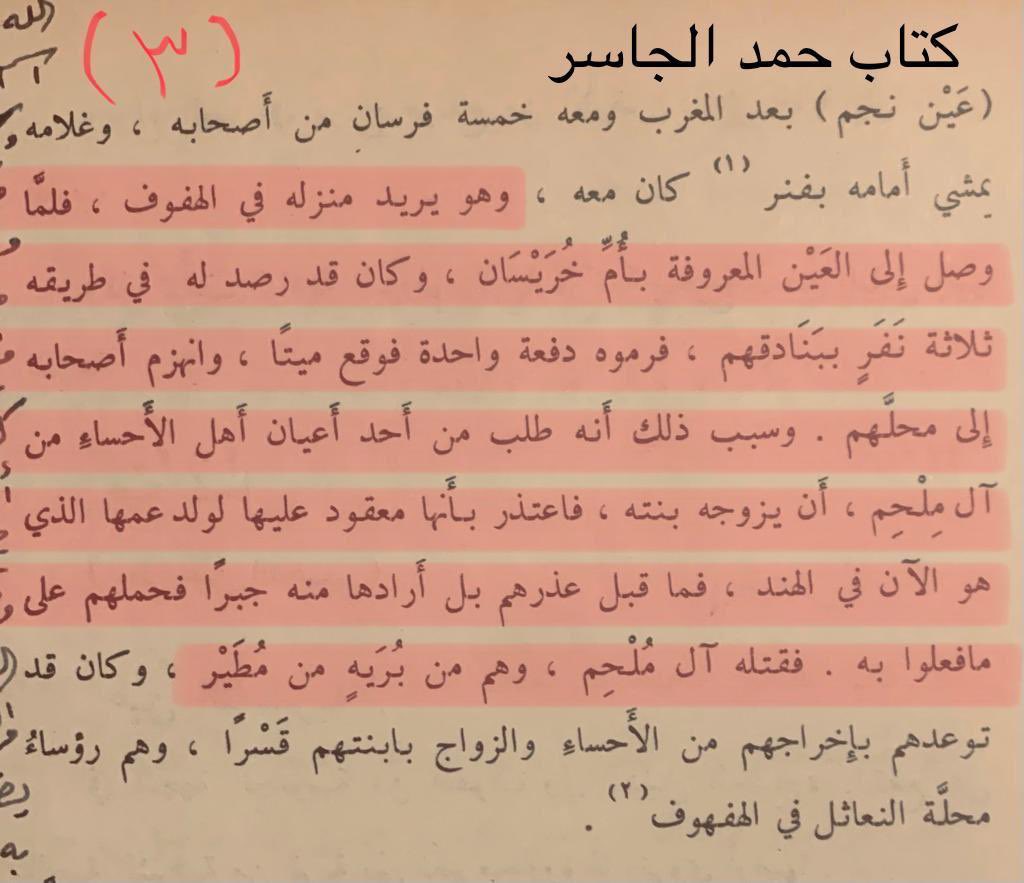 كتاب حمد الجاسر
(٣)
(عَيْن نجم) بعد المغرب ومعه خمسة فرسان من أَصحابه ، وغلامه
يمشي أَمامه بفنر (١) كان معه ، وهو يريد منزله في الهفوف ، فلمَّا
وصل إِلى العَيْن المعروفة بأُمِّ خُرَيْسَان ، وكان قد رصد له في طريقه
ثلاثة نَفَرٍ ببَنَادقهم ، فرموه دفعة واحدة فوقع ميتًا ، وانهزم أَصحابه
إِلى محلَّهم . وسبب ذلك أَنه طلب من أَحد أَعيان أَهل الأَحساءِ من
آل مِلْحِم ، أَن يزوجه بنته ، فاعتذر بأَنها معقود عليها لولد عمها الذي
هو الآن في الهند ، فما قبل عذرهم بل أَرادها منه جبرًا فحملهم على
مافعلوا به . فقتله آل مُلْحِم ، وهم من بُرَيَهٍ من مُطَيْر ، وكان قد
توعدهم بإِخراجهم من الأَحساءِ والزواج بابنتهم قَسْرًا ، وهم رؤساءُ
محلَّة النعاثل في الهفهوف (٢) .